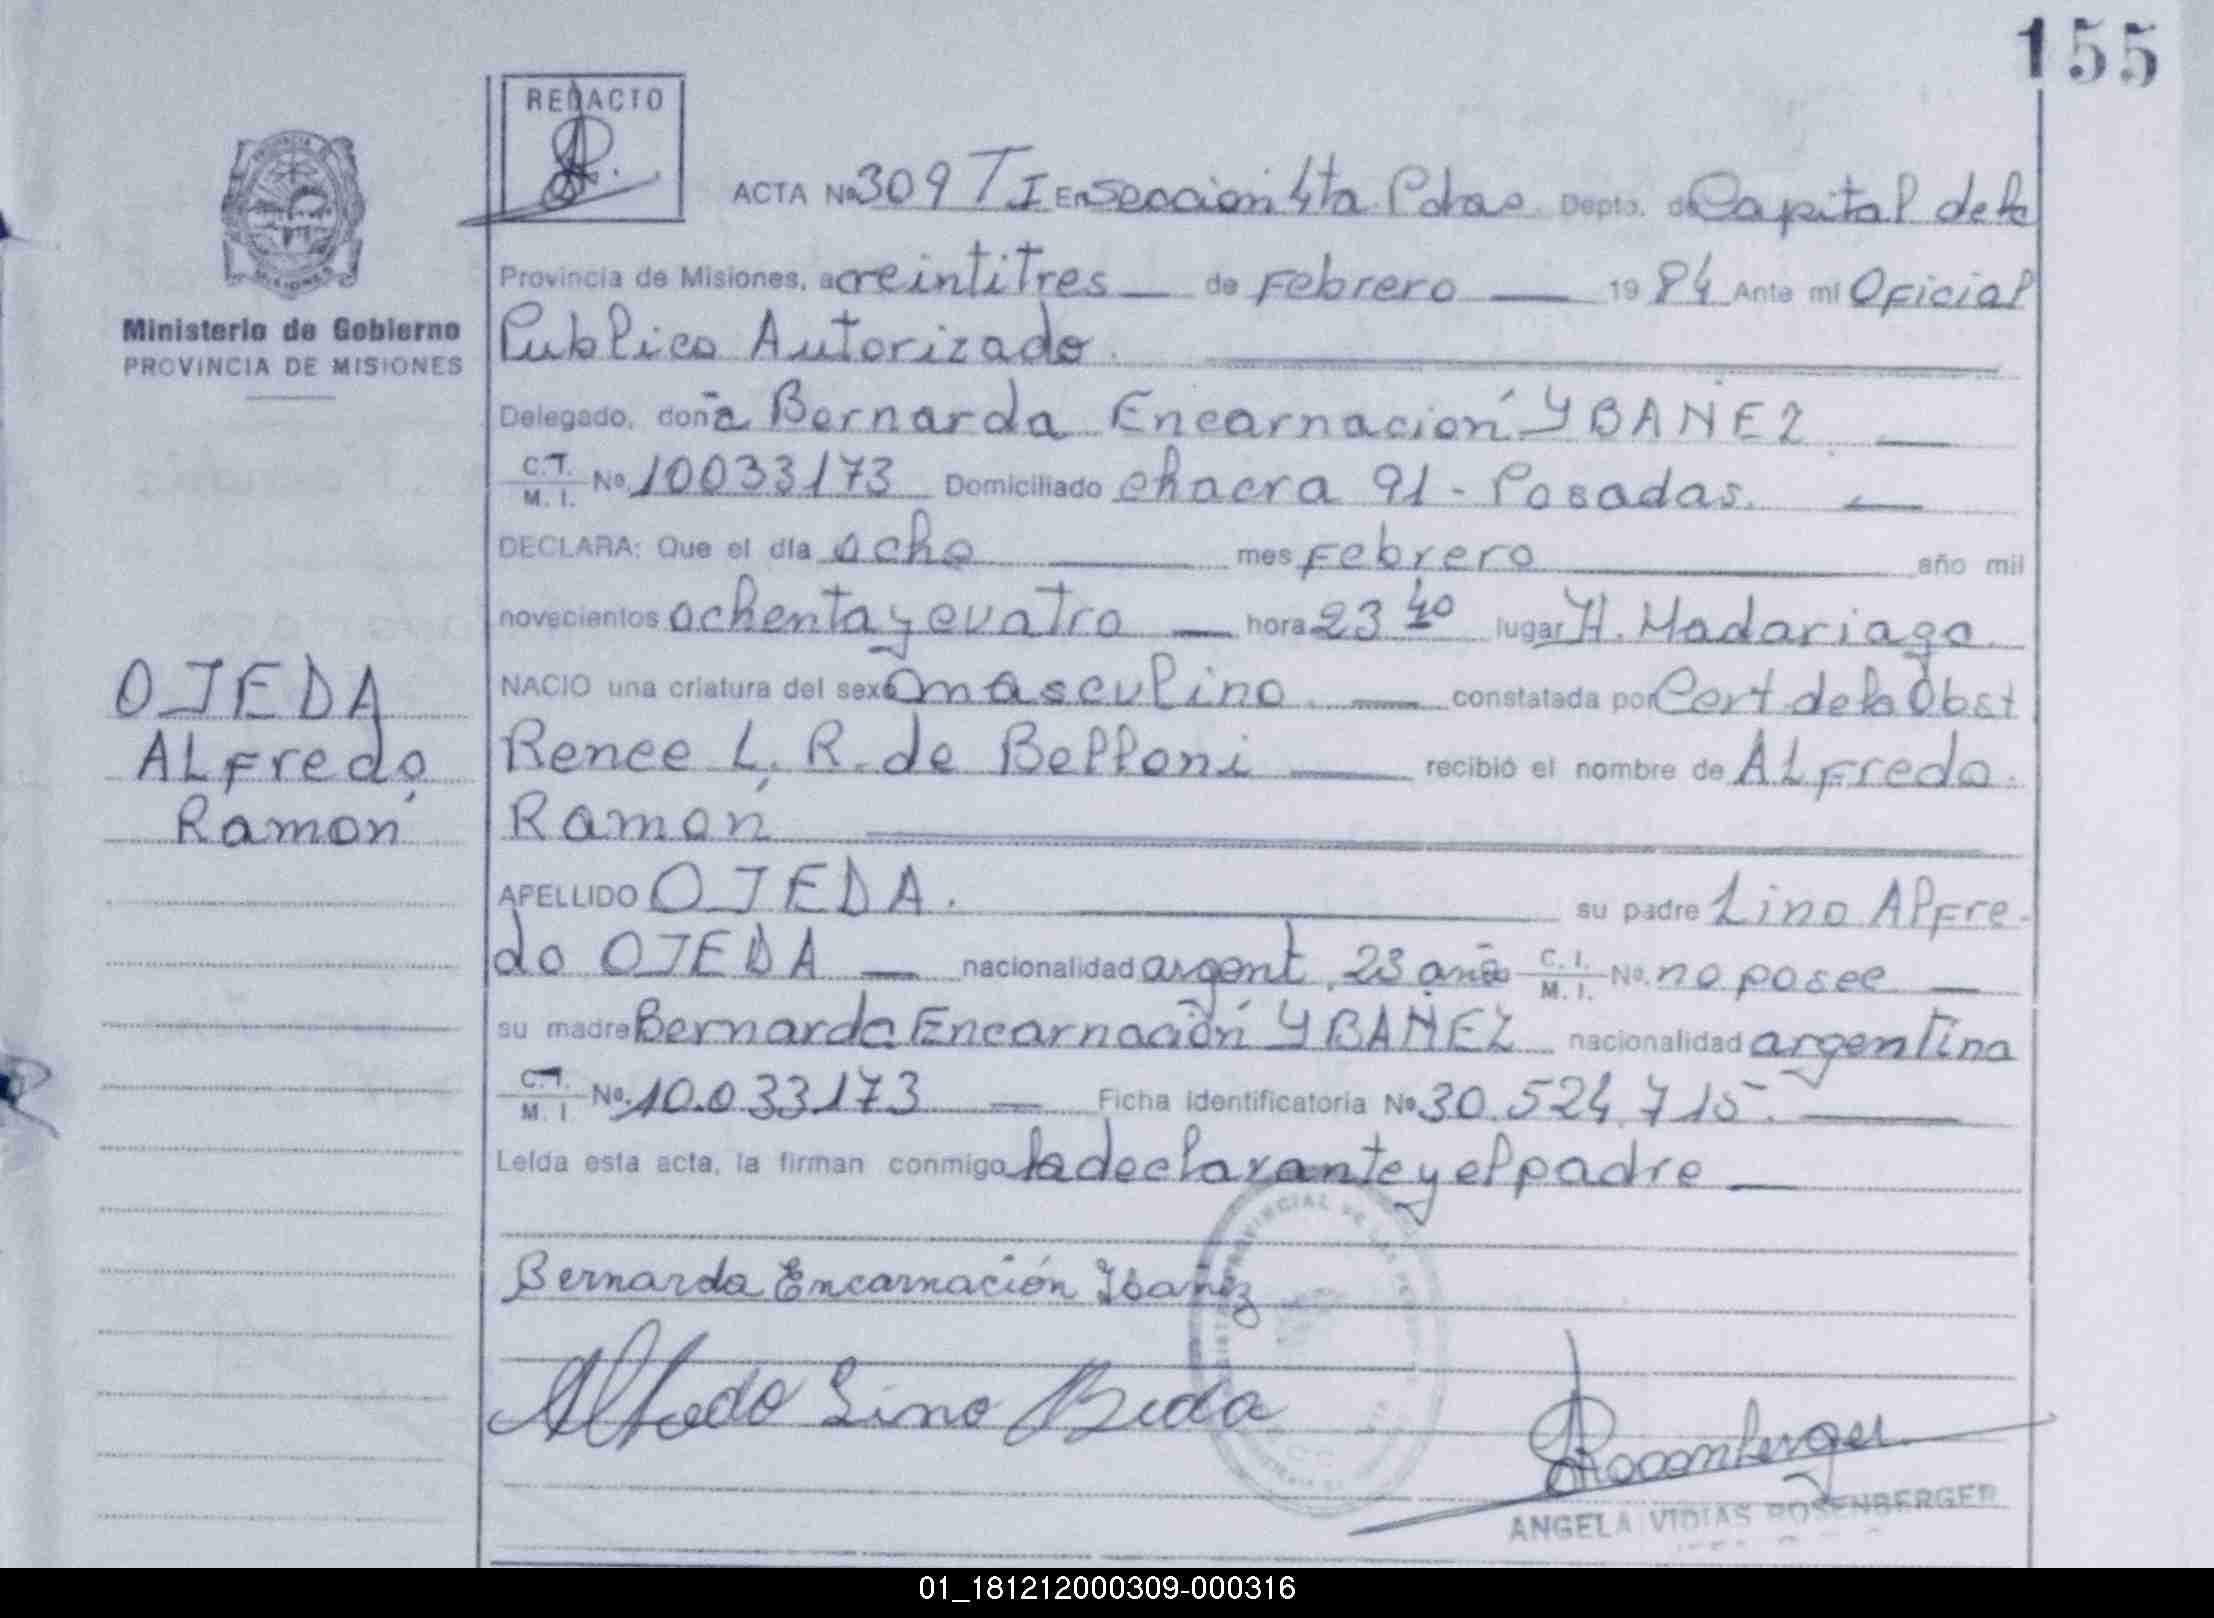 155
REDACTO
ACTA Nº 309 T I En Seccion 4ta. Pdas. Depto. de Capital de la
Provincia de Misiones, a veintitres de Febrero 1984 Ante mi Oficial
Publico Autorizado.
Ministerio de Gobierno
PROVINCIA DE MISIONES
Delegado, doña Bernarda Encarnación YBAÑEZ
C.I. M. I. Nº 10033173 Domiciliado chacra 91 - Posadas.
DECLARA: Que el día ocho mes Febrero año mil
novecientos ochenta y cuatro hora 23 40 lugar H. Madariaga.
NACIO una criatura del sexo masculino. constatada por Cert. de la Obst
Renee L. R. de Belloni recibió el nombre de ALFredo.
Ramón
OJEDA
ALFredo
Ramón
APELLIDO OJEDA. su padre Lino AlFre-
do OJEDA nacionalidad argent. 23 años C. I. M. I. Nº no posee
su madre Bernarda Encarnación YBAÑEZ nacionalidad argentina
C.I. M. I Nº 10.033173 Ficha Identificatoria Nº 30.524.715.
Leída esta acta, la firman conmigo la declarante y el padre
Bernarda Encarnación Ibañez
Alfredo Lino
ANGELA VIDIAS ROSENBERGER
01_181212000309-000316